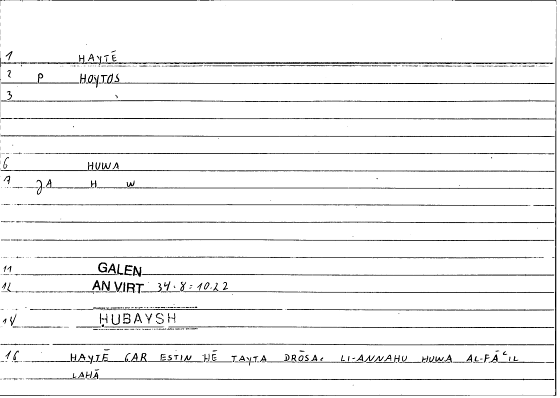 1 HAYTĒ
2 P HOYTOS
3
6 HUWA
7 JA H W
11 GALEN
12 AN VIRT 34.8:10.22
14 HUBAYSH
16 HAYTĒ GAR ESTIN HĒ TAYTA DRŌSA. LI-ANNAHU HUWA AL-FĀʿIL
LAHĀ